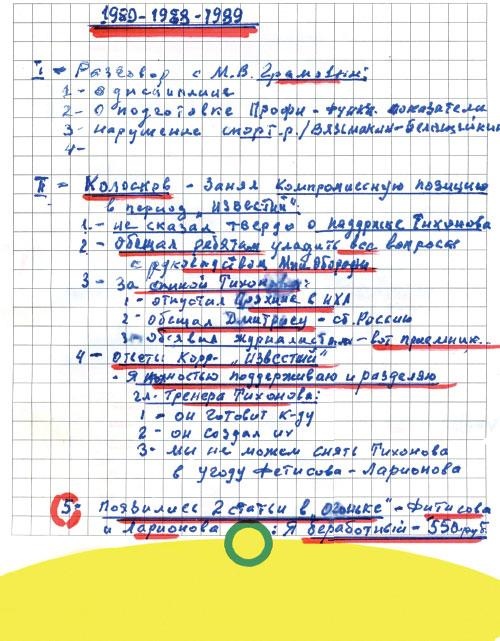 1980-1988-1989
I = Разговор с М.В. Грамовым:
1- о дисциплине
2- О подготовке Профи - Функ. показатели
3- Нарушение спорт.р./Вязьмикин-Белошейкин
4-
II = Колосков - Занял компромиссную позицию
в период „Известий":
1- не сказал твердо о поддержке Тихонова
2- Обещал ребятам уладить все вопросы
с руководством Мин.Обороны
3- За спиной Тихонова:
1- отпустил Пряхина в НХЛ
2- обещал Дмитриеву - сб. России
3- Объявил журналистам - вот приемник...
4- Ответы Корр- „Известий"
- Я полностью поддерживаю и разделяю
гл. Тренера Тихонова:
1- он готовит к-ду
2- он создал их
3- мы не можем снять Тихонова
в угоду Фетисова-Ларионова
5- Появились 2 статьи в „Огоньке" - Фитисова
и Ларионова : Я Безработный - 550 руб.